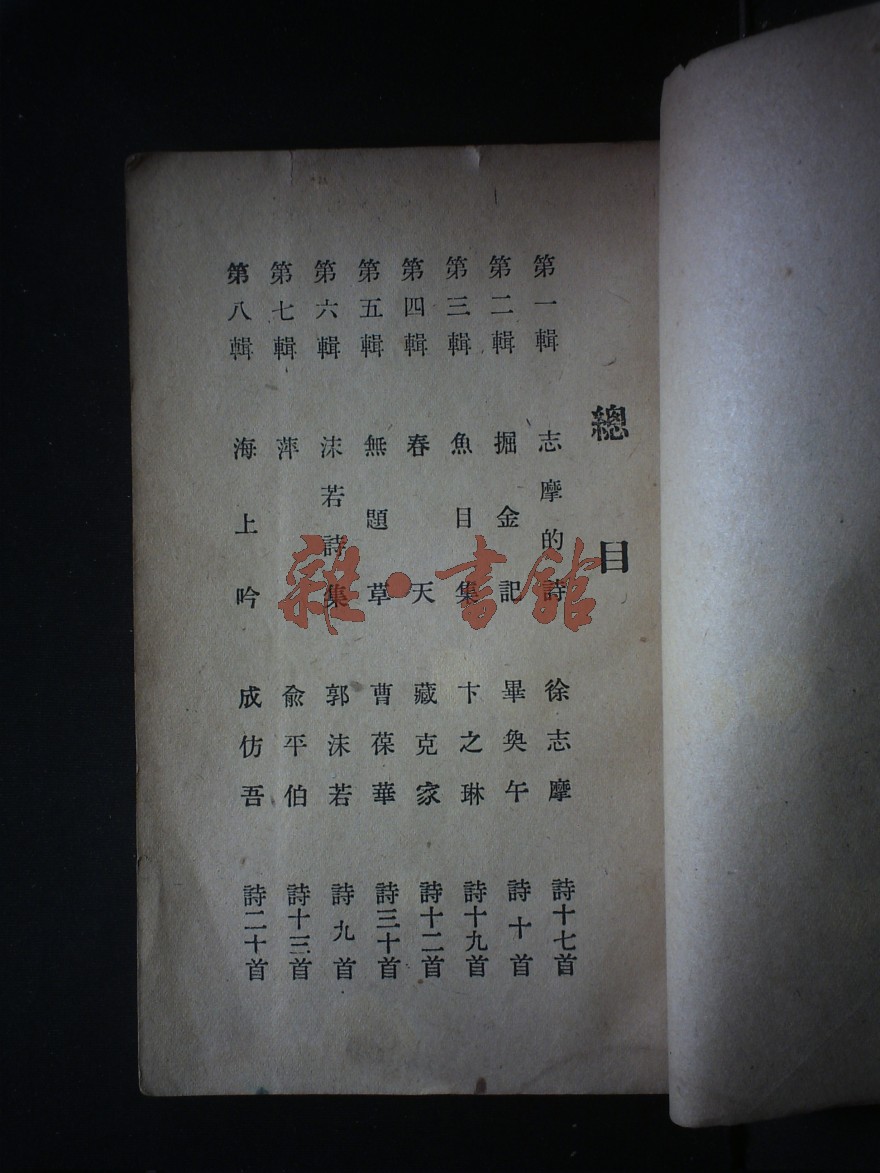 總目
第一輯 志摩的詩 徐志摩 詩十七首
第二輯 掘金記 畢奐午 詩十首
第三輯 魚目集 卞之琳 詩十九首
第四輯 春天 臧克家 詩十二首
第五輯 無題草 曹葆華 詩三十首
第六輯 沫若詩集 郭沫若 詩九首
第七輯 萍 俞平伯 詩十三首
第八輯 海上吟 成仿吾 詩二十首
雜·書館